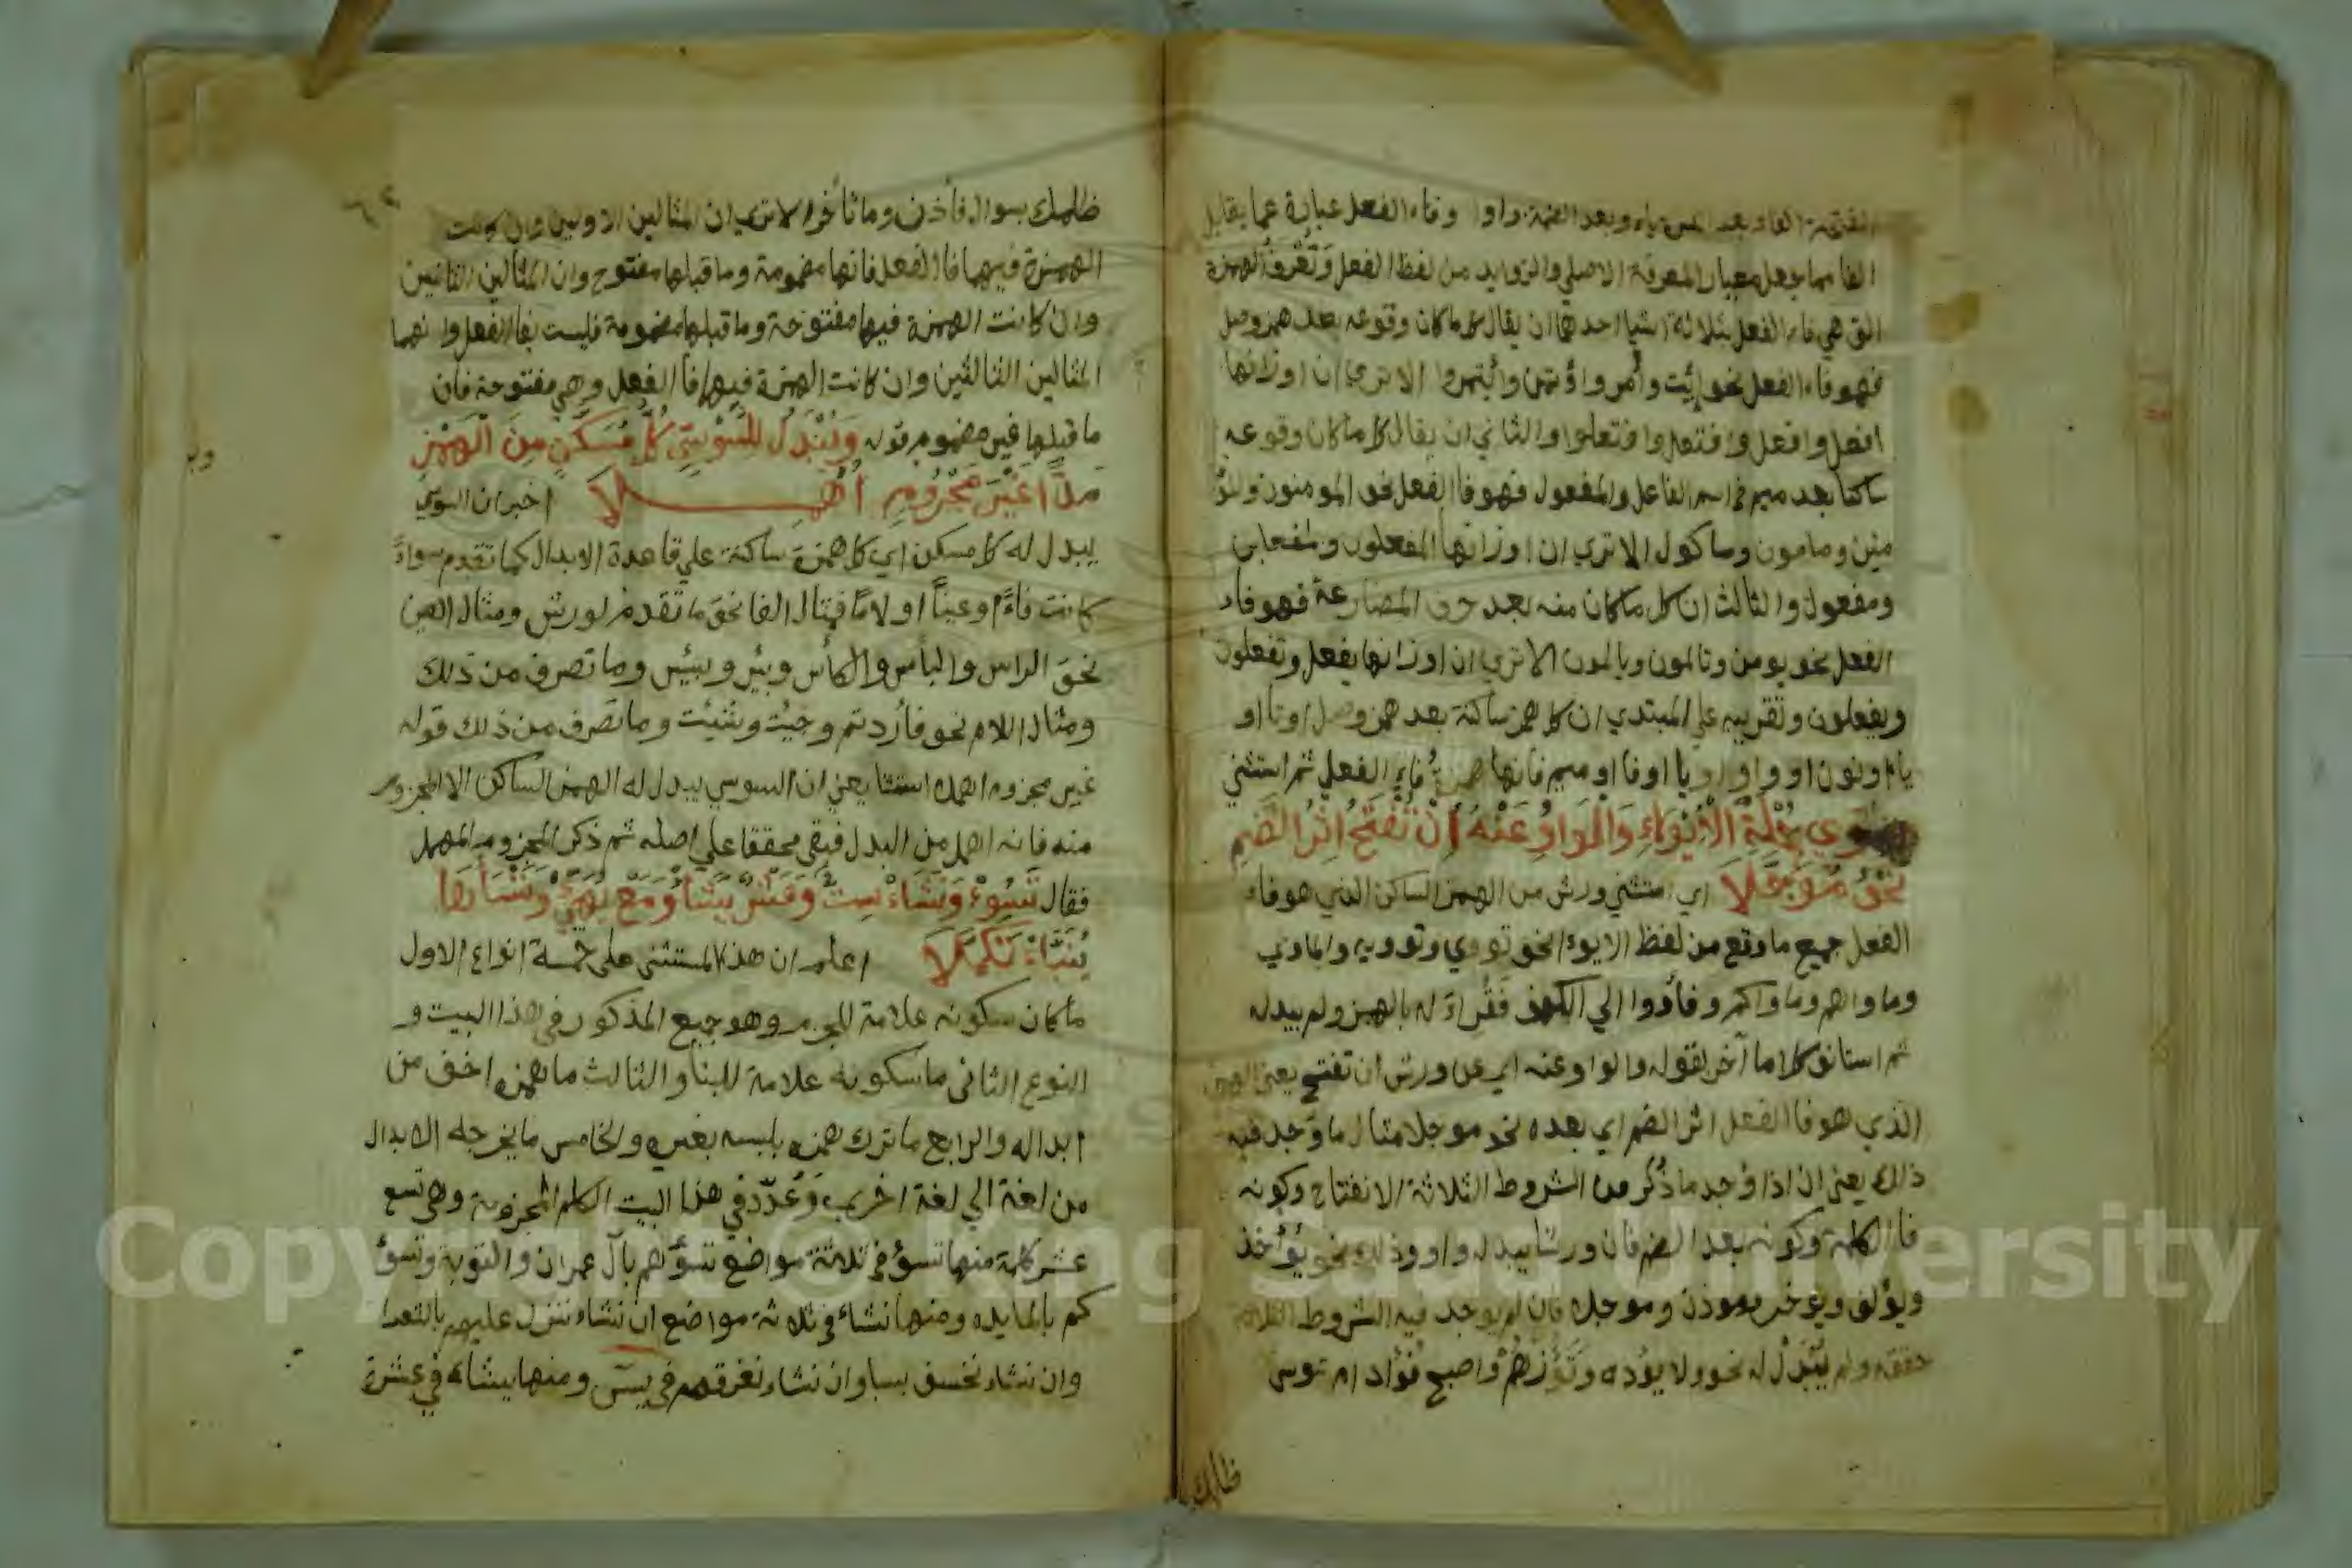 الفتحة الفا وبعد الكسرة ياء وبعد الضمة واوا وفاء الفعل عبارة عما يقابل
الفا مما جعل معيار المعرفة الاصلي والزوايد من لفظ الفعل وتعرف الهمزة
التي هي فاء الفعل بثلاثة اشيا احدها ان يقال كل ما كان وقوعه بعد همز وصل
فهو فاء الفعل نحو ائت وأمر واؤتمن وأيتمروا الا تري ان اوزانها
افعل وافعل وافتعل وافتعلوا والثاني ان يقال كل ما كان وقوعه
ساكنا بعد ميم في اسم الفاعل والمفعول فهو فا الفعل نحو المومنون والمؤ
منين ومامون وماكول الا تري ان اوزانها المفعلون والمفعلين
ومفعول والثالث ان كل ما كان منه بعد حرف المضارعة فهو فاء
الفعل نحو يومن وتالمون ويالمون الا تري ان اوزانها يفعل وتفعلون
ويفعلون وتقريبه علي المبتدي ان كل همز ساكنة بعد همز وصل او تا او
ياء او نون او واو او فا او ميم فانها همزة فاء الفعل ثم استثني
سوي جملة الايواء والواو عنه ان تفتح اثر الضم
نحو مؤجلا اي استثني ورش من الهمز الساكن الذي هو فاء
الفعل جميع ما وقع من لفظ الايواء نحو تووي وتوويه والماوي
وماواهم وماواكم وفأووا الي الكهف فقراءة له بالهمز ولم يبدله
ثم استانف كلاما آخر بقوله والواو عنه اي عن ورش ان تفتح يعني الهمز
الذي هو فا الفعل اثر الضم اي بعده نحو موجلا مثال ما وجد فيه
ذلك يعني ان اذا وجد ما ذكر من الشروط الثلاثة الانفتاح وكونه
فا الكلمة وكونه بعد الضم فان ورشا يبدله واوا وذلك نحو يؤاخذ
ويؤلف ويوخر وموذن وموجلا فان لم يوجد فيه الشروط الثلاثة
حققه ولم يبدل له نحو ولا يؤده وتؤزهم واصبح فؤاد ام موسي
ظلمك
ظلمك بسوال فأذن وما تأخر الا تري ان المثالين الاولين وان كانت
الهمزة فيهما فا الفعل فانها مضمومة وما قبلها مفتوح وان المثالين الثانيين
وان كانت الهمزة فيها مفتوحة وما قبلها مضمومة فليست بفا الفعل وانهما
المثالين الثالثين وان كانت الهمزة فيها فأ الفعل وهي مفتوحة فان
ما قبلها غير مضموم قوله ويبدل للسوسي كل مسكن من الهمز
مدا غير مجزوم اهملا اخبر ان السوسي
يبدل له كل مسكن اي كل همزة ساكنة علي قاعدة الابدال كما تقدم سواء
كانت فاءً او عيناً او لامًا فمثال الفا نحو ما تقدم لورش ومثال العين
نحو الراس والبأس والكأس وبئر وبيئس وما تصرف من ذلك
ومثال اللام نحو فأردتم وجيت وشيئت وما تصرف من ذلك قوله
غير مجزوم اهملا استثنا يعني ان السوسي يبدل له الهمز الساكن الا المجزوم
منه فانه اهمل من البدل فبقي محققا علي اصله ثم ذكر المجزوم المهمل
فقال تسوء ونشاء ست وعشر يشأ ومع يهيئ وننسأها
ينبأ تكملا اعلم ان هذا المستثني علي خمسة انواع الاول
ما كان سكونه علامة للجزم وهو جميع المذكور في هذا البيت و
النوع الثاني ما سكونه علامة للبنا والثالث ما همزه اخف من
ابداله والرابع ما ترك همزه يلبسه بغيره والخامس ما يخرجه الابدال
من لغة الي لغة اخري وعدد في هذا البيت الكلم المجزومة وهي تسع
عشر كلمة منها تسؤ في ثلاثة مواضع تسؤهم بآل عمران والتوبة وتسؤ
كم بالمايده ومنها نشاء في ثلاثة مواضع ان نشاء ننزل عليهم بالشعرا
وان نشاء نخسف بسبا وان نشاء نغرقهم في يسٓ ومنها يشاء في عشرة
Copyright © King Saud University